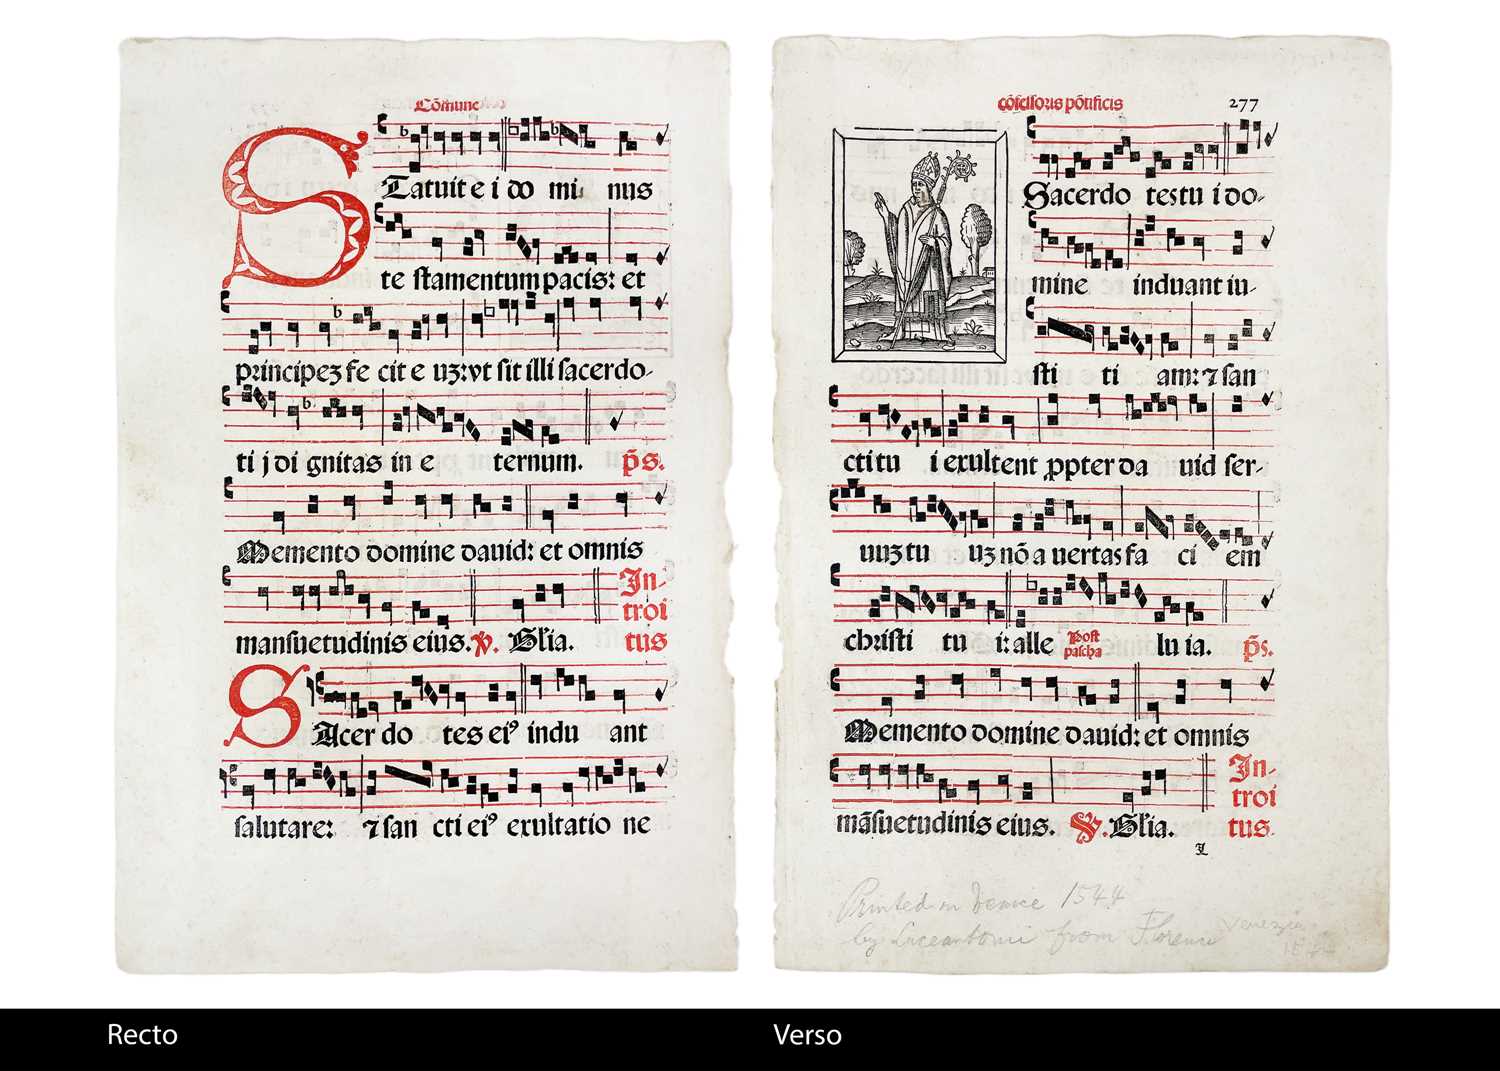 Cōmune
STatuit e i do mi nus
te stamentum pacis: et
principeʒ fe cit e uʒ: vt sit illi sacerdo-
ti j di gnitas in e ternum. p̄s.
Memento domine dauid: et omnis
In-
troi
mansuetudinis eius. ℣. Gl'ia. tus
SAcer do tes ei⁹ indu ant
salutare: ⁊ san cti ei⁹ exultatio ne
cōfessoris pōtificis 277
Sacerdo tes tu i do-
mine induant iu-
sti ti am: ⁊ san
cti tu i exultent ꝓpter da uid ser-
uuʒ tu uʒ nō a uertas fa ci em
christi tu i: alle Post pascha lu ia. p̄s.
Memento domine dauid: et omnis
In-
troi
māsuetudinis eius. ℣. Gl'ia. tus.
Printed in Venice 1544
by from Florence Venezia
Recto
Verso